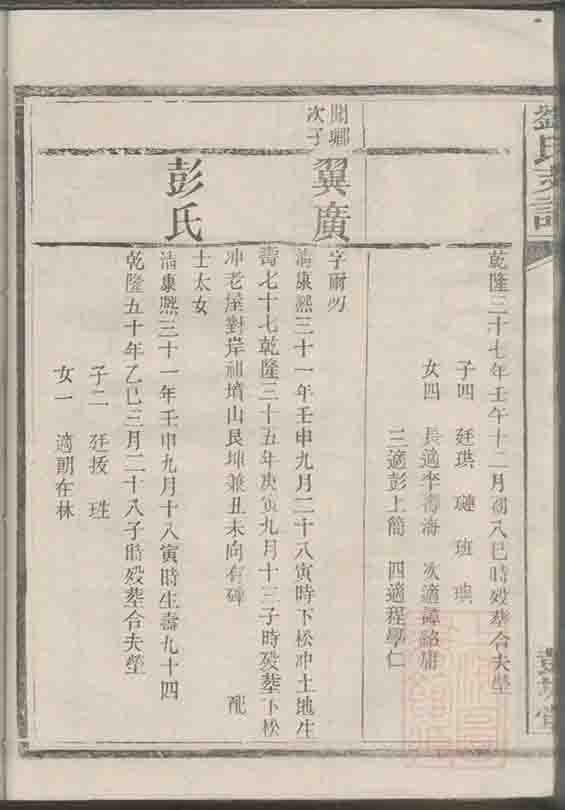 劉氏支譜
乾隆二十七年壬午十二月初八巳時歿葬合夫塋
子四 廷珙 璉 班 璵
女四 長適李壽海 次適譚銘庸
三適彭上簡 四適程學仁
開鄉次子
翼廣
字爾明
清康熙三十一年壬申九月二十八寅時下松冲土地生
壽七十七乾隆三十五年庚寅九月十三子時歿葬下松
冲老屋對岸祖墳山艮坤兼丑未向有碑 配
彭氏
士太女
清康熙三十一年壬申九月十八寅時生壽九十四
乾隆五十年乙巳三月二十八子時歿葬合夫塋
子二 廷拔 珄
女一 適胡在林